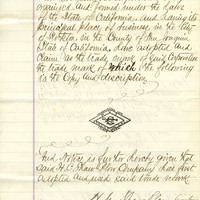 organized and formed under the laws
of the State of California, and having its
principal place of business in the City
of Stockton, in the County of San Joaquin
State of California, have adopted and
Claim as the trade mark of said Corporation
the trade mark of which the following
is the Copy and description.
And Notice is further hereby given that
said H.C. Shaw Plow Company have first
adopted and used said trade mark
H. C. Shaw Plow